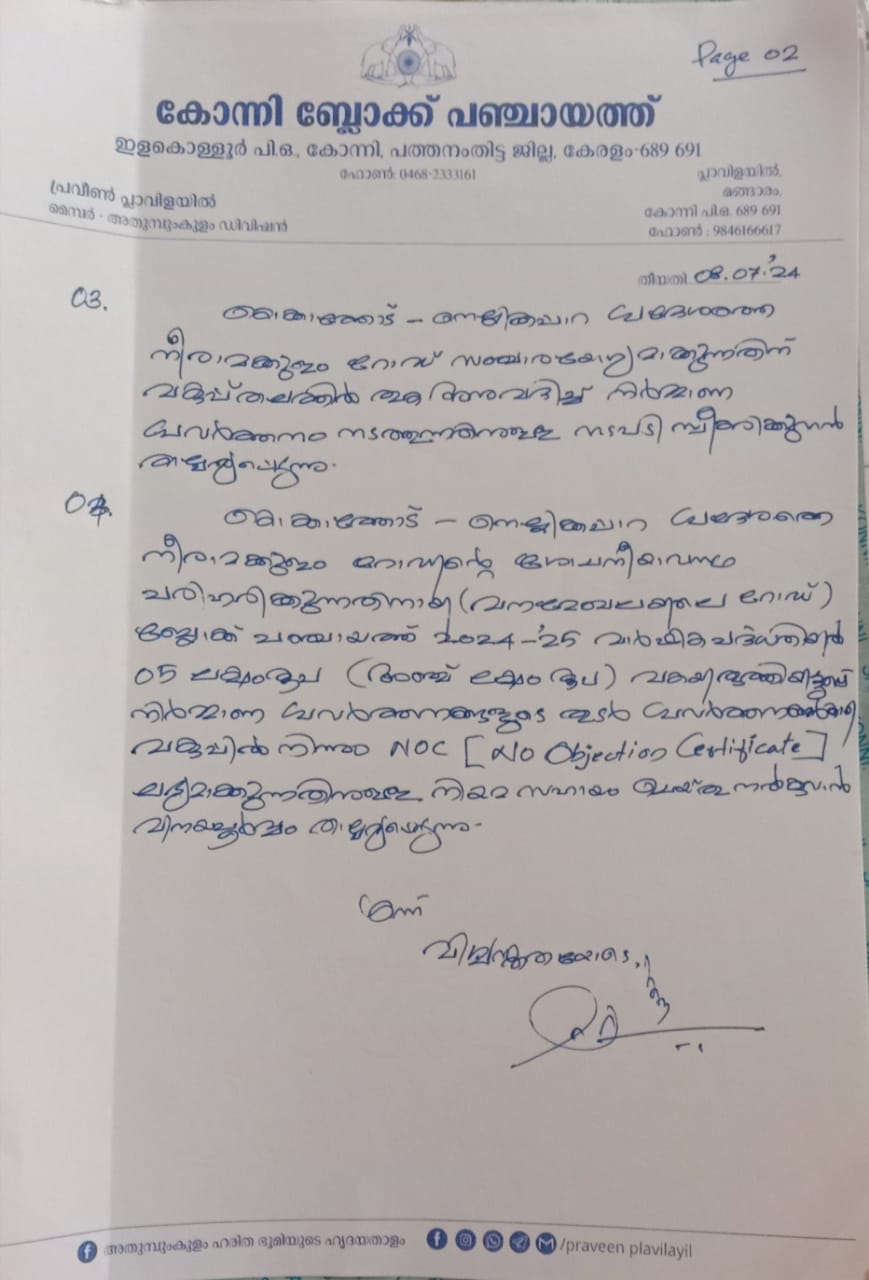 Page 02
കോന്നി ബ്ലോക്ക് പഞ്ചായത്ത്
ഇളകൊള്ളൂർ പി.ഒ., കോന്നി, പത്തനംതിട്ട ജില്ല, കേരളം-689 691
ഫോൺ: 0468-2333161
പ്രവീൺ പ്ലാവിളയിൽ
മെമ്പർ - അതുമ്പുംകുളം ഡിവിഷൻ
പ്ലാവിളയിൽ,
മങ്ങാരം,
കോന്നി പി.ഒ. 689 691
ഫോൺ : 9846166617
തീയതി 08.07.'24
03.
- നെല്ലിക്കപാറ പ്രദേശത്തെ
റോഡ് സഞ്ചാരയോഗ്യമാക്കുന്നതിന്
വകുപ്പ്തലത്തിൽ തുക അനുവദിച്ച് നിർമ്മാണ
പ്രവർത്തനം നടത്തുന്നതിനുള്ള നടപടി സ്വീകരിക്കുവാൻ
താല്പര്യപ്പെടുന്നു.
04.
- നെല്ലിക്കപാറ പ്രദേശത്തെ
റോഡിന്റെ ശോചനീയാവസ്ഥ
പരിഹരിക്കുന്നതിനായി (വനമേഖലയിലെ റോഡ്)
ബ്ലോക്ക് പഞ്ചായത്ത് 2024-'25 വാർഷികപദ്ധതിയിൽ
05 ലക്ഷംരൂപ (അഞ്ച് ലക്ഷം രൂപ) വകയിരുത്തിയിട്ടുണ്ട്
നിർമ്മാണ പ്രവർത്തനങ്ങളുടെ തുടർ പ്രവർത്തനങ്ങൾക്കായി
വകുപ്പിൽ നിന്നും NOC [No Objection Certificate]
ലഭ്യമാക്കുന്നതിനുള്ള നിയമ സഹായം ചെയ്തു നൽകുവാൻ
വിനയപൂർവ്വം താല്പര്യപ്പെടുന്നു.
എന്ന്
വിശ്വസ്തതയോടെ,
അതുമ്പുംകുളം ഹരിത ഭൂമിയുടെ ഹൃദയതാളം
/praveen plavilayil